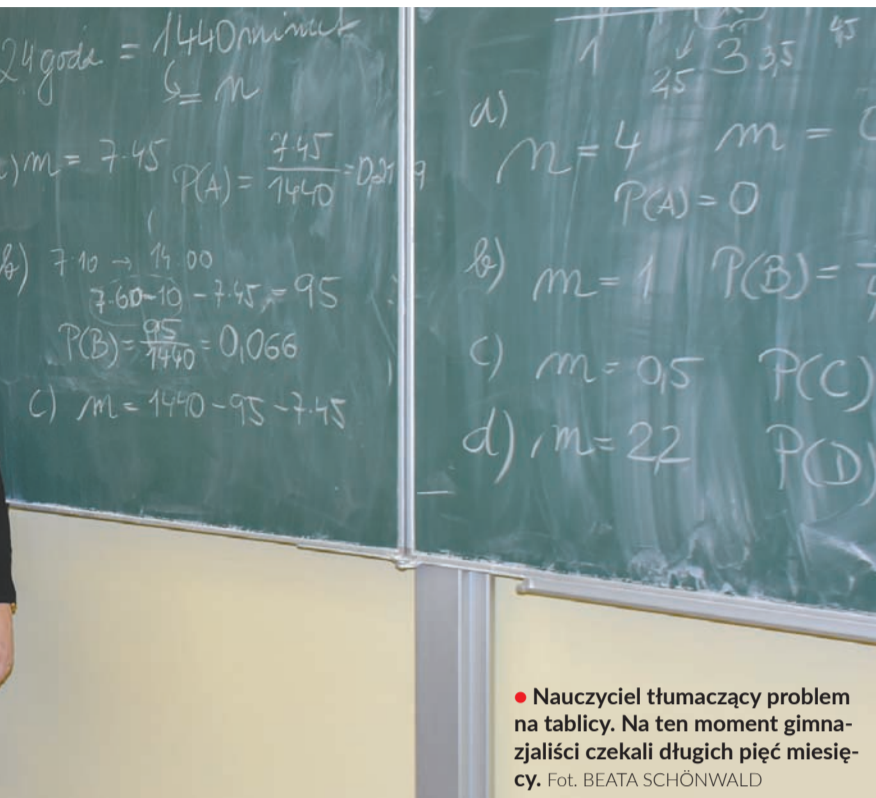 24 godz = 1440 minut
= n
m = 7·45 P(A) = 7·45 / 1440 =
b) 7·10 → 14.00
7·60-10 - 7·45 = 95
P(B) = 95 / 1440 = 0,066
c) m = 1440 - 95 - 7·45
1 2,5 3 3,5 4,5
a)
n = 4 m =
P(A) = 0
b) m = 1 P(B) =
c) m = 0,5 P(C)
d) m = 2,2 P(D)
● Nauczyciel tłumaczący problem
na tablicy. Na ten moment gimna-
zjaliści czekali długich pięć miesię-
cy. Fot. BEATA SCHÖNWALD